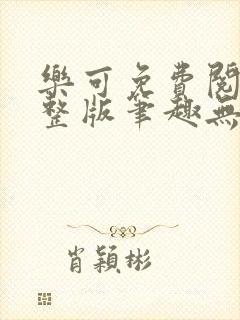 樂可免費閱
整版筆趣無
肖穎彬